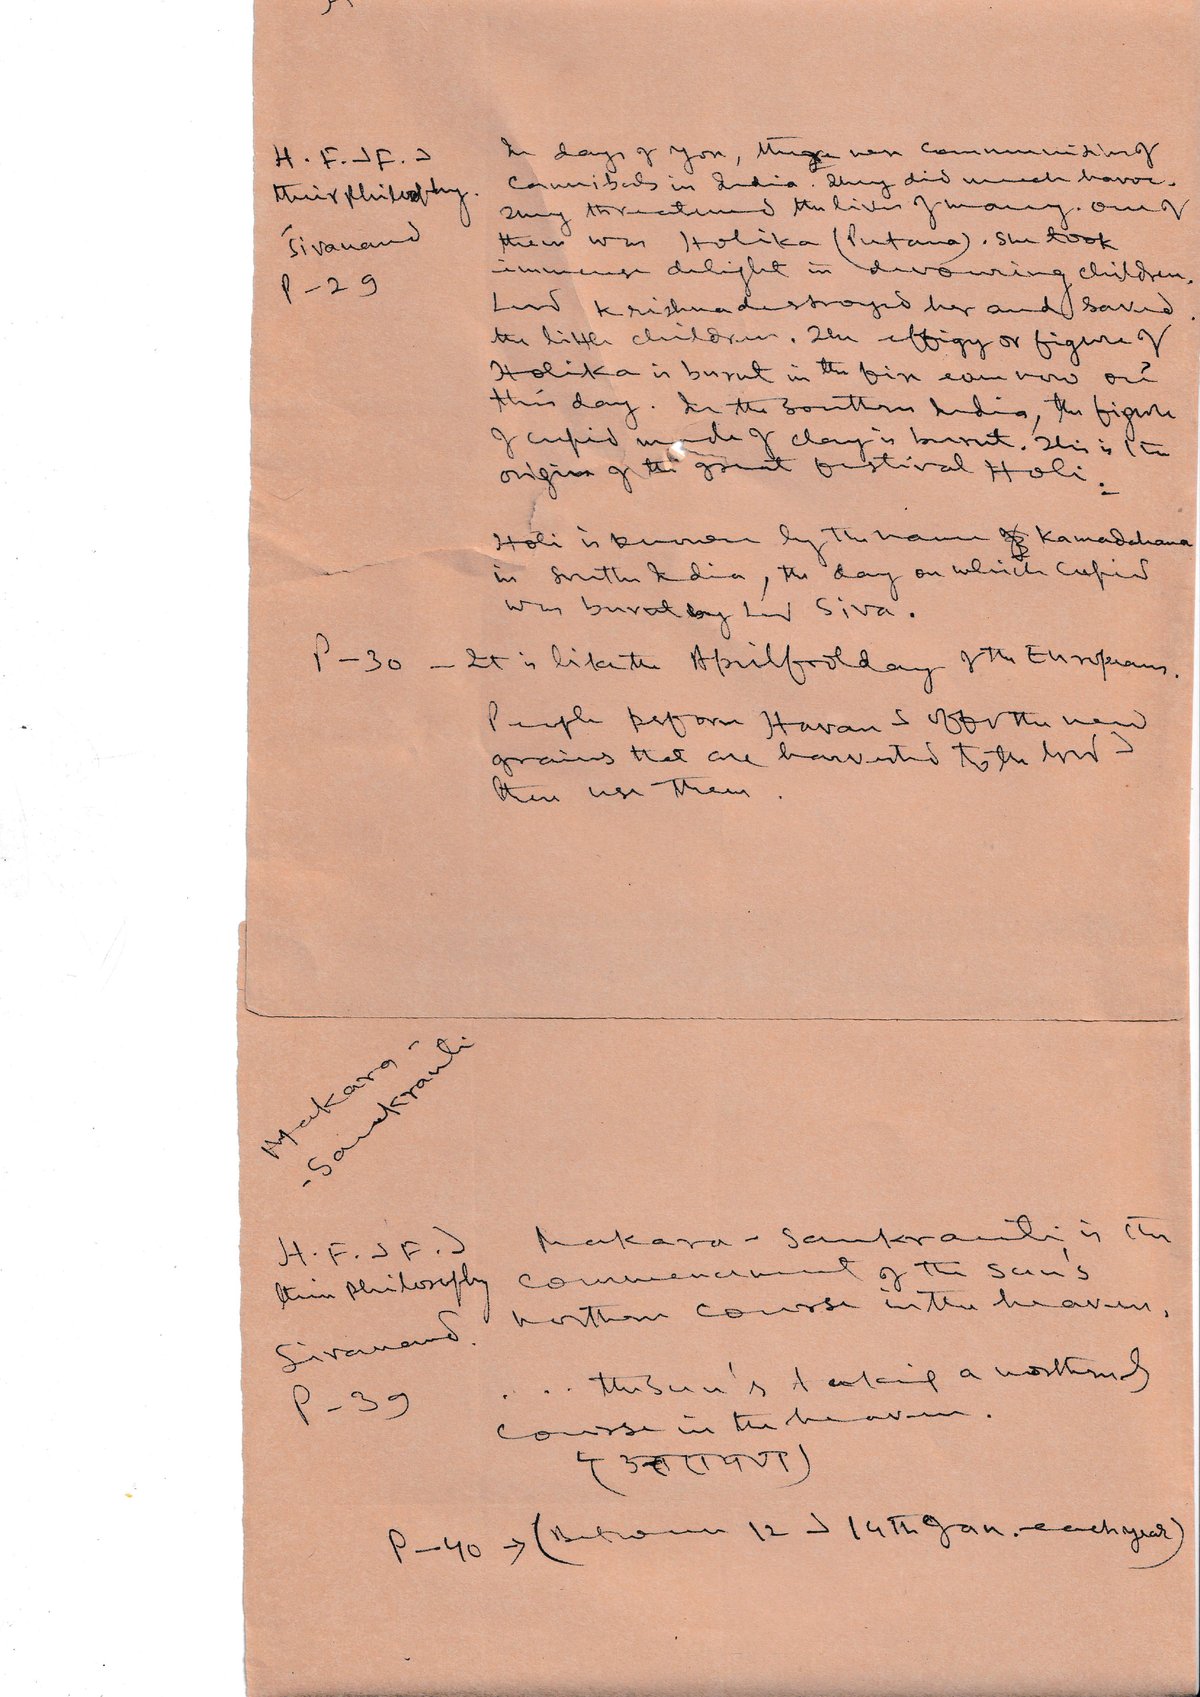 H.F. & F. &
their philosophy.
Sivanand
P-29
In days of yore, there were communities of
cannibals in India. They did much havoc.
They threatened the lives of many. One of
them was Holika (Putana). She took
immense delight in devouring children.
Lord Krishna destroyed her and saved
the little children. The effigy or figure of
Holika is burnt in the fire even now on
this day. In the Southern India, the figure
of cupid made of clay is burnt. This is the
origin of the great festival Holi.
Holi is known by the name of Kamadahana
in South India, the day on which Cupid
was burnt by Lord Siva.
P-30 - It is like the April fool day of the Europeans.
People perform Havan & offer the new
grains that are harvested to the Lord &
then use them.
Makara-
-Sankranti
H.F. & F. &
their philosophy
Sivanand.
P-39
Makara-Sankranti, is the
commencement of the Sun's
northern course in the heaven.
.... the Sun's taking a northernly
course in the heaven.
(उत्तरायण)
P-40 → (Between 12 & 14th Jan. each year)